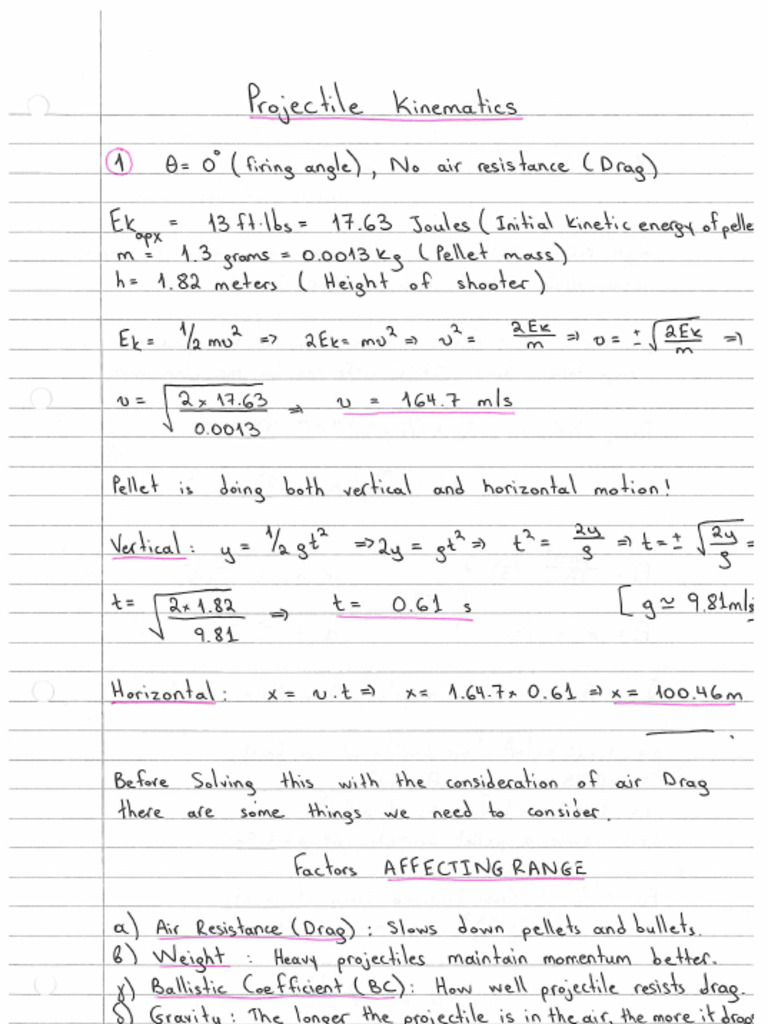 Projectile Kinematics
1 θ = 0° (firing angle), No air resistance (Drag)
Ek apx = 13 ft·lbs = 17.63 Joules (Initial kinetic energy of pelle
m = 1.3 grams = 0.0013 kg (Pellet mass)
h = 1.82 meters (Height of shooter)
Ek = 1/2 mv² => 2Ek = mv² => v² = 2Ek/m => v = ± √(2Ek/m) =>
v = √(2 x 17.63 / 0.0013) => v = 164.7 m/s
Pellet is doing both vertical and horizontal motion!
Vertical: y = 1/2 gt² => 2y = gt² => t² = 2y/g => t = ± √(2y/g) =
t = √(2 x 1.82 / 9.81) => t = 0.61 s [g ≃ 9.81m/s
Horizontal: x = v.t => x = 1.64.7 x 0.61 => x = 100.46m
Before Solving this with the consideration of air Drag
there are some things we need to consider.
Factors AFFECTING RANGE
α) Air Resistance (Drag): Slows down pellets and bullets.
β) Weight: Heavy projectiles maintain momentum better.
γ) Ballistic Coefficient (BC): How well projectile resists drag.
δ) Gravity: The longer the projectile is in the air, the more it drop